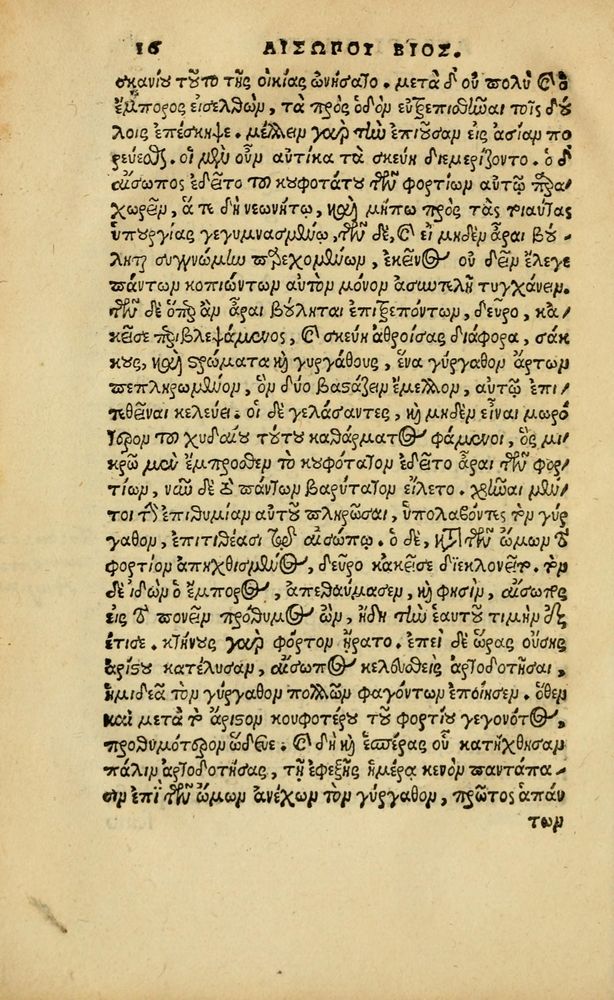 16 ΑΙΣΩΠΟΥ ΒΙΟΣ.
σκανίου τοῦτο τῆς οἰκίας ὠνήσατο. μετὰ δ' οὐ πολὺ καὶ ὁ
ἔμπορος εἰσελθὼν, τὰ πρὸς ὁδὸν εὐτρεπισθῆναι τοῖς δού
λοις ἐπέσκηψε. μέλλειν γὰρ τὴν ἐπιοῦσαν εἰς ἀσίαν πο
ρεύεσθαι. οἱ μὲν οὖν αὐτίκα τὰ σκεύη διεμερίζοντο. ὁ δ'
αἴσωπος ἐδεῖτο τὸ κουφότατον τῶν φορτίων αὐτῷ παρα/
χωρεῖν, ἅτε δὴ νεωνήτῳ, καὶ μήπω πρὸς τὰς τοιαύτας
ὑπουργίας γεγυμνασμένῳ, τῶν δὲ, καὶ εἰ μηδὲν ἆραι βού-
λητ συγγνώμην παρεχομένων, ἐκεῖνος οὐ δεῖν ἔλεγε
πάντων κοπιώντων αὐτὸν μόνον ἀσυντελῆ τυγχάνειν.
τῶν δὲ ὅπερ ἂν ἆραι βούληται ἐπιτρεπόντων, δεῦρο, κἀ
κεῖσε περιβλεψάμενος, καὶ σκεύη ἀθροίσας διάφορα, σάκ
κους, καὶ στρώματα καὶ γυργάθους, ἕνα γύργαθον ἄρτων
πεπληρωμένον, ὃν δύο βαστάζειν ἔμελλον, αὐτῷ ἐπι/
τεθῆναι κελεύει. οἱ δὲ γελάσαντες, καὶ μηδὲν εἶναι μωρό
τερον τοῦ χυδαίου τούτου καθάρματος φάμενοι, ὃς μι/
κρῷ μὲν ἔμπροσθεν τὸ κουφότατον ἐδεῖτο ἆραι τῶν φορ/
τίων, νῦν δὲ τὸ πάντων βαρύτατον εἵλετο. χρῆναι μέν/
τοι τὴν ἐπιθυμίαν αὐτοῦ πληρῶσαι, ὑπολαβόντες τὸν γύρ
γαθον, ἐπιτιθέασι τῷ αἰσώπῳ. ὁ δὲ, κατὰ τῶν ὤμων τὸ
φορτίον ἀπηχθισμένος, δεῦρο κἀκεῖσε διεκλονεῖτο. τὸν
δὲ ἰδὼν ὁ ἔμπορος, ἀπεθαύμασεν, καὶ φησὶν, αἴσωπος
εἰς τὸ πονεῖν πρόθυμος ὢν, ἤδη τὴν ἑαυτοῦ τιμὴν ἐξ
έτισε. κτήνους γὰρ φόρτον ἤρατο. ἐπεὶ δὲ ὥρας οὔσης
ἀρίστου κατέλυσαν, αἴσωπος κελευσθεὶς ἀρτοδοτῆσαι,
ἡμιδεᾶ τὸν γύργαθον πολλῶν φαγόντων ἐποίησεν. ὅθεν
καὶ μετὰ τὸ ἄριστον κουφοτέρου τοῦ φορτίου γεγονότος,
προθυμότερον ὥδευε. καὶ δὴ καὶ ἑσπέρας οὗ κατήχθησαν
πάλιν ἀρτοδοτήσας, τῇ ἐφεξῆς ἡμέρᾳ κενὸν παντάπα-
σιν ἐπὶ τῶν ὤμων ἀνέχων τὸν γύργαθον, πρῶτος ἁπάν
των